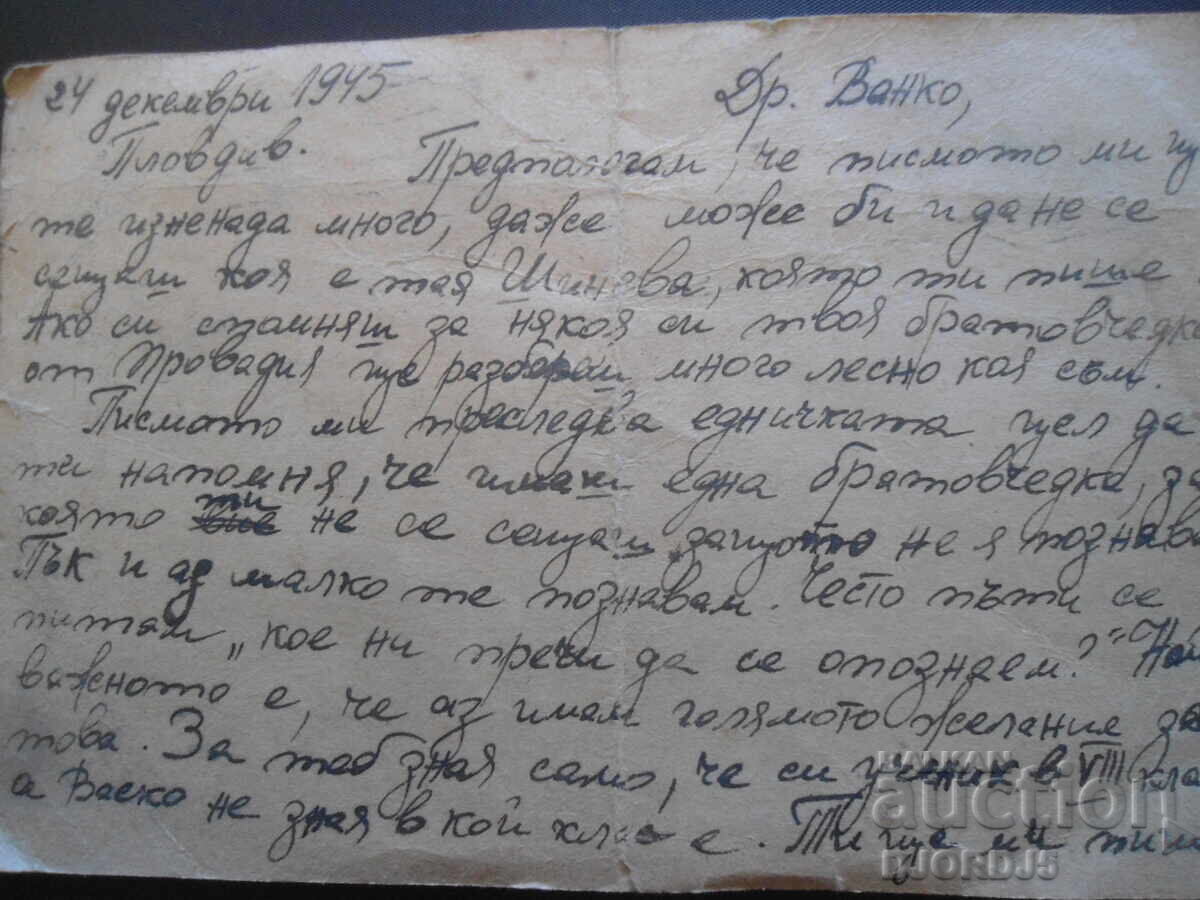 24 декември 1945
Др. Ванко,
Пловдив. Предполагам, че писмото ми ще
те изненада много, даже може би и да не се
сещаш коя е тая Шинева, която ти пише
Ако си спомняш за някоя си твоя братовчедка
от Провадия ще разбереш много лесно коя съм.
Писмото ми преследва едничката цел да
ти напомня, че имаш една братовчедка, за
която ти не се сещаш, защото не я познава
Пък и аз малко те познавам. Често пъти се
питам „кое ни пречи да се опознаем?" Най
важното е, че аз имам голямото желание за
това. За теб зная само, че си ученик в VIII кла
а Васко не зная в кой клас е. Ти ще ми пиш
BALKAN
auction
DJORDJ5